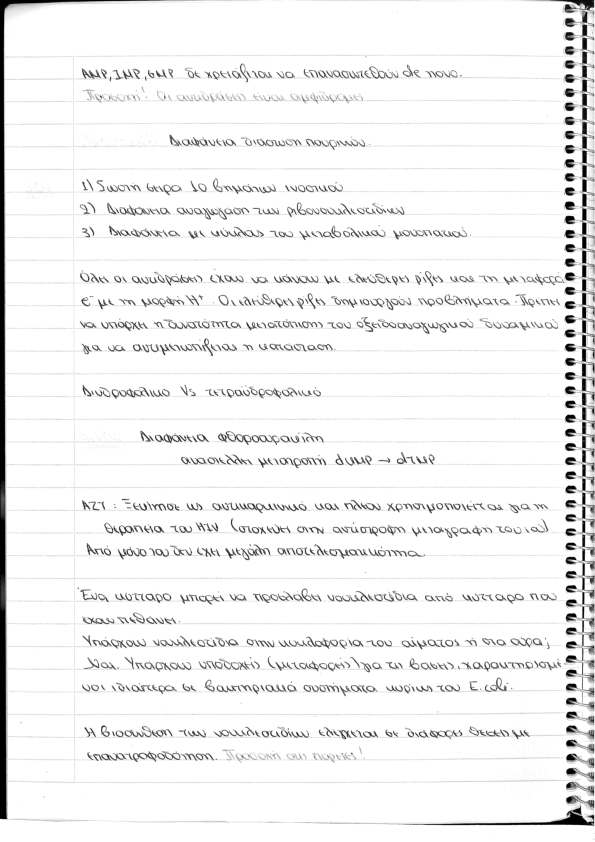 AMP, IMP, GMP δε χρειάζεται να επανασυντεθούν de novo.
Προσοχή! Οι αντιδράσεις είναι αμφίδρομες
Διαφάνεια διάσωση πουρινών.
1) Σωστή σειρά 10 βημάτων ινοσινικού
2) Διαφάνεια αναγωγάση των ριβονουκλεοτιδίων
3) Διαφάνεια με κύκλους του μεταβολικού μονοπατιού.
Όλες οι αντιδράσεις έχουν να κάνουν με ελεύθερες ρίζες και τη μεταφορά
e⁻ με τη μορφή H⁺. Οι ελεύθερες ρίζες δημιουργούν προβλήματα. Πρέπει
να υπάρχει η δυνατότητα μετατόπισης του οξειδοαναγωγικού δυναμικού
για να αντιμετωπίζεται η κατάσταση.
Διυδροφολικό Vs τετραϋδροφολικό
Διαφάνεια φθοροουρακίλη
αναστέλλει μετατροπή dUMP → dTMP
AZT: Ξεκίνησε ως αντικαρκινικό και πλέον χρησιμοποιείται για τη
θεραπεία του HIV (στοχεύει στην αντίστροφη μεταγραφή του ιού)
Από μόνο του δεν έχει μεγάλη αποτελεσματικότητα.
Ένα κύτταρο μπορεί να προσλάβει νουκλεοτίδια από κύτταρα που
έχουν πεθάνει.
Υπάρχουν νουκλεοτίδια στην κυκλοφορία του αίματος ή στα ούρα;
Ναι. Υπάρχουν υποδοχείς (μεταφορείς) για τις βάσεις, χαρακτηρισμέ-
νοι ιδιαίτερα σε βακτηριακά συστήματα κυρίως του E.coli.
Η βιοσύνθεση των νουκλεοτιδίων ελέγχεται σε διάφορες θέσεις με
επανατροφοδότηση. Προσοχή στις πορείες!